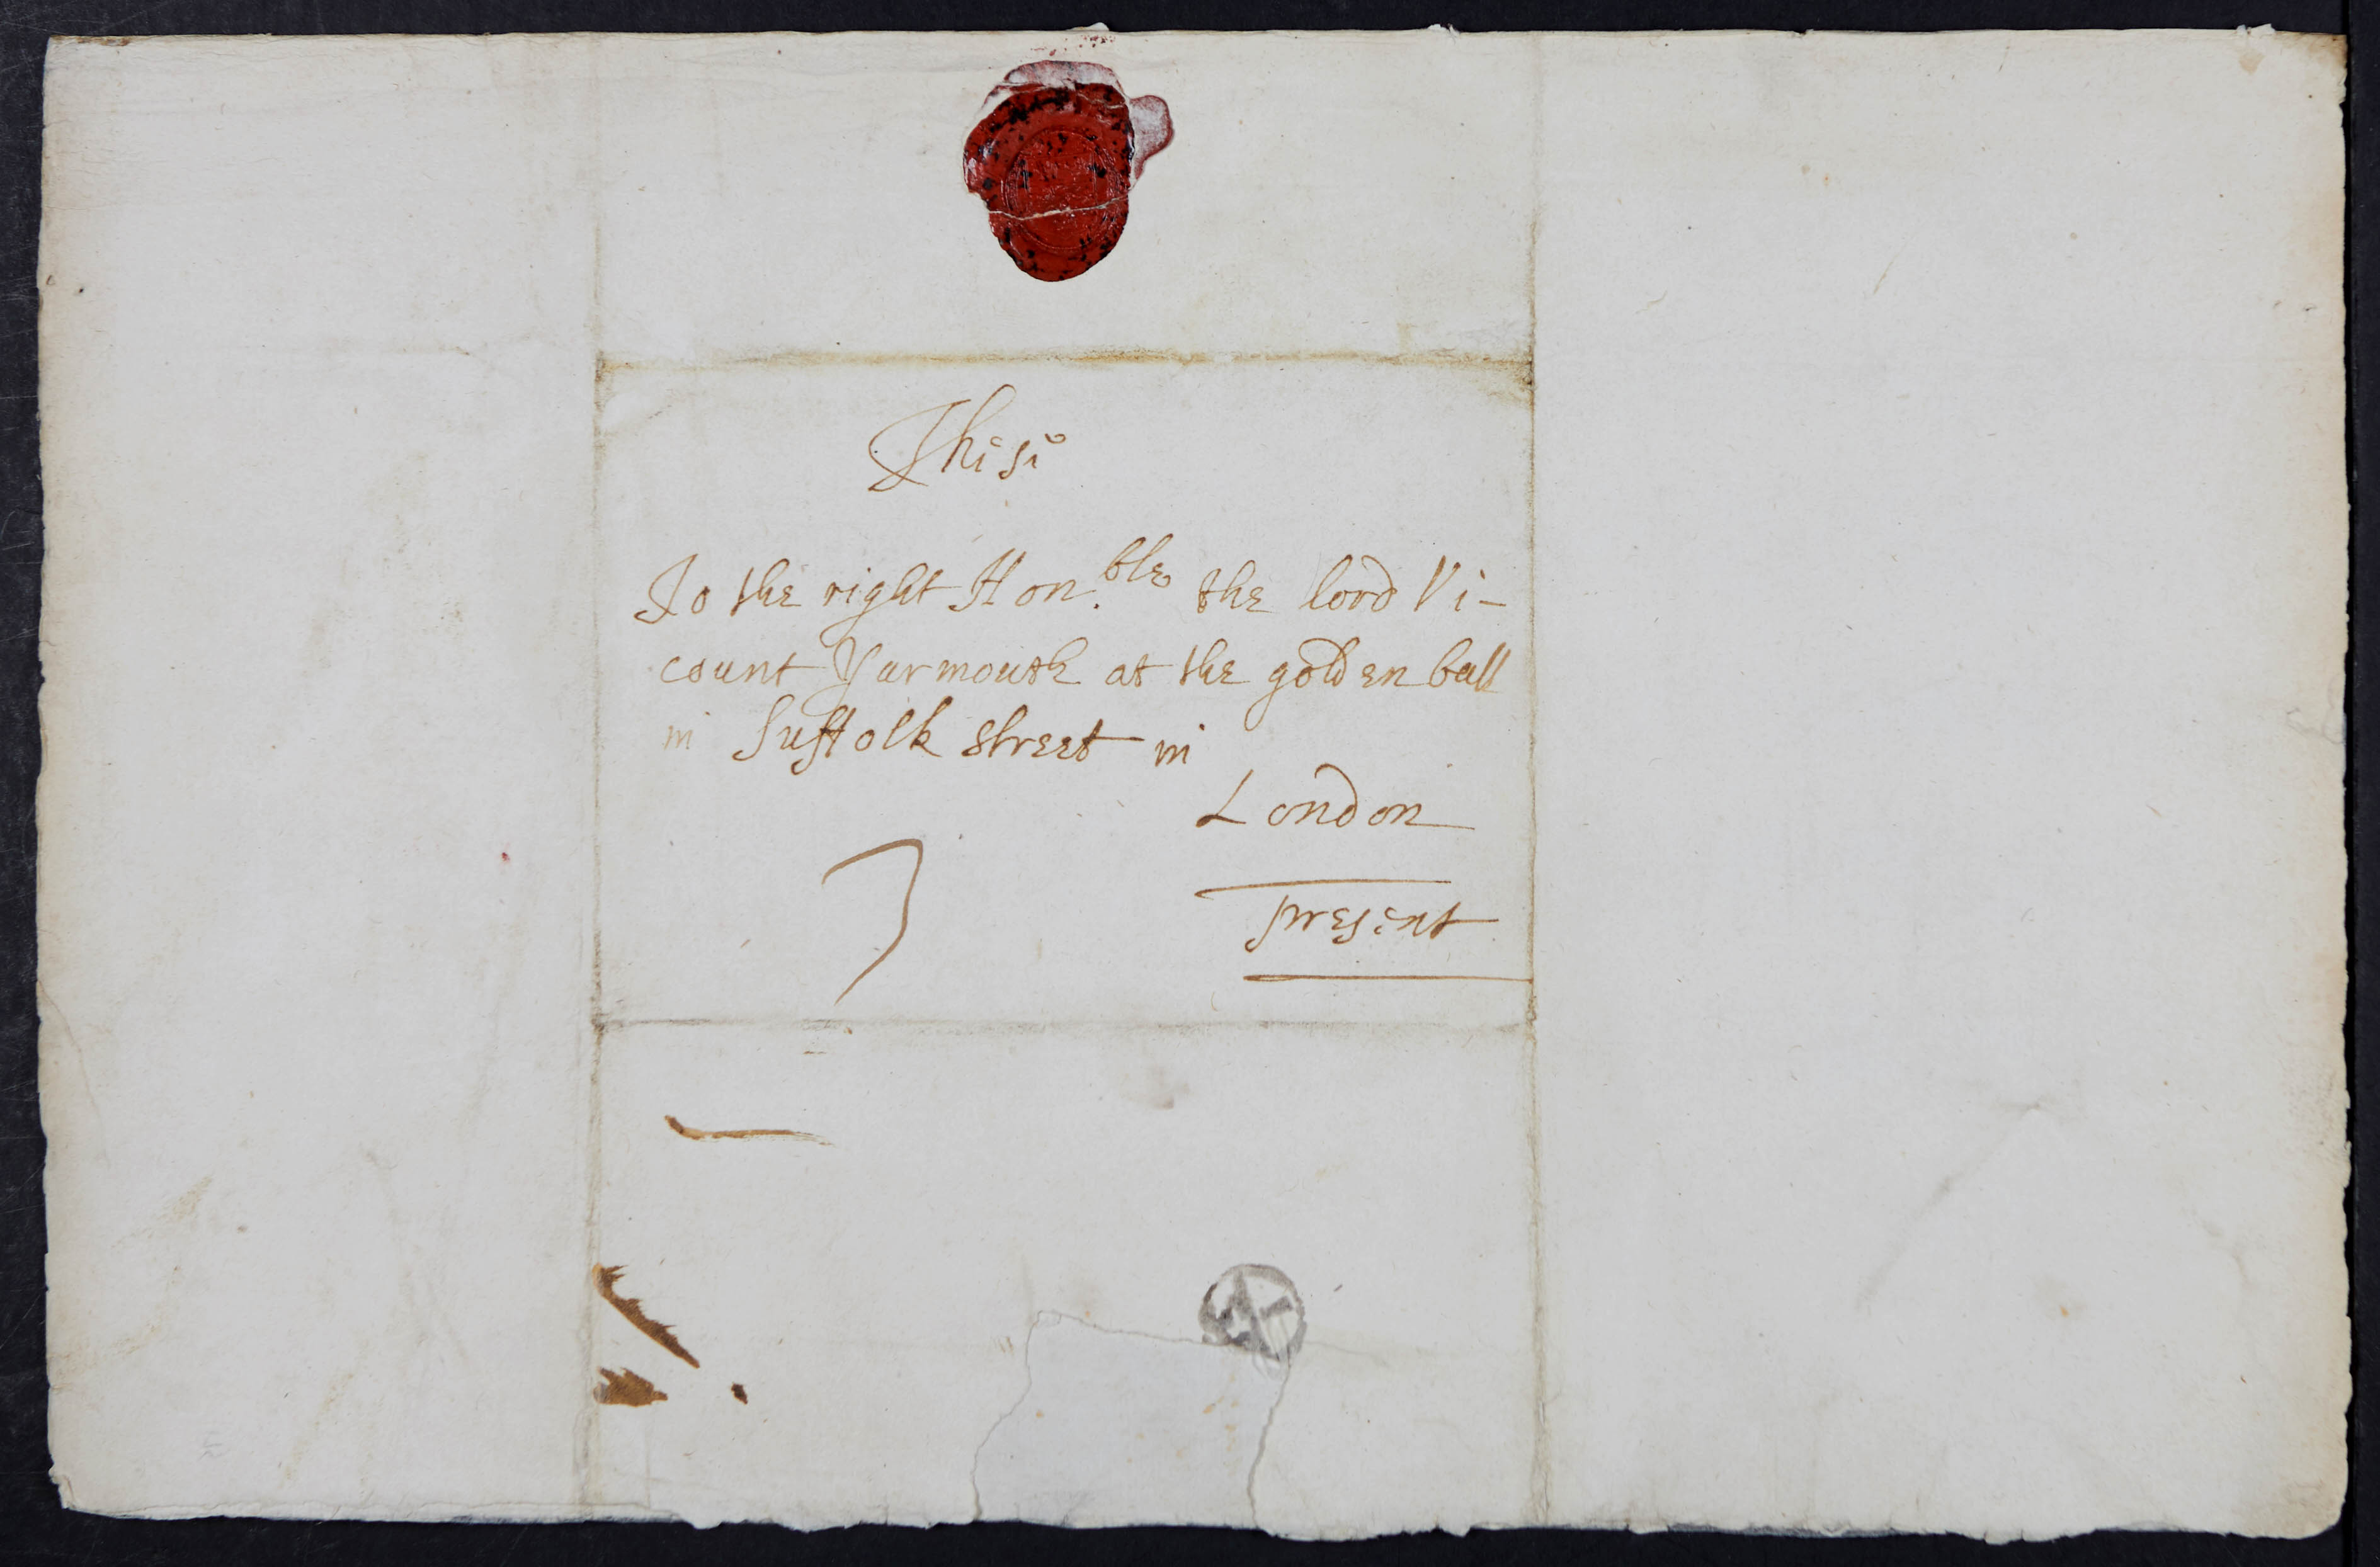 These
To the right Hon.ble the lord Vi-
count Yarmouth at the golden ball
in Suffolk street in
London
present